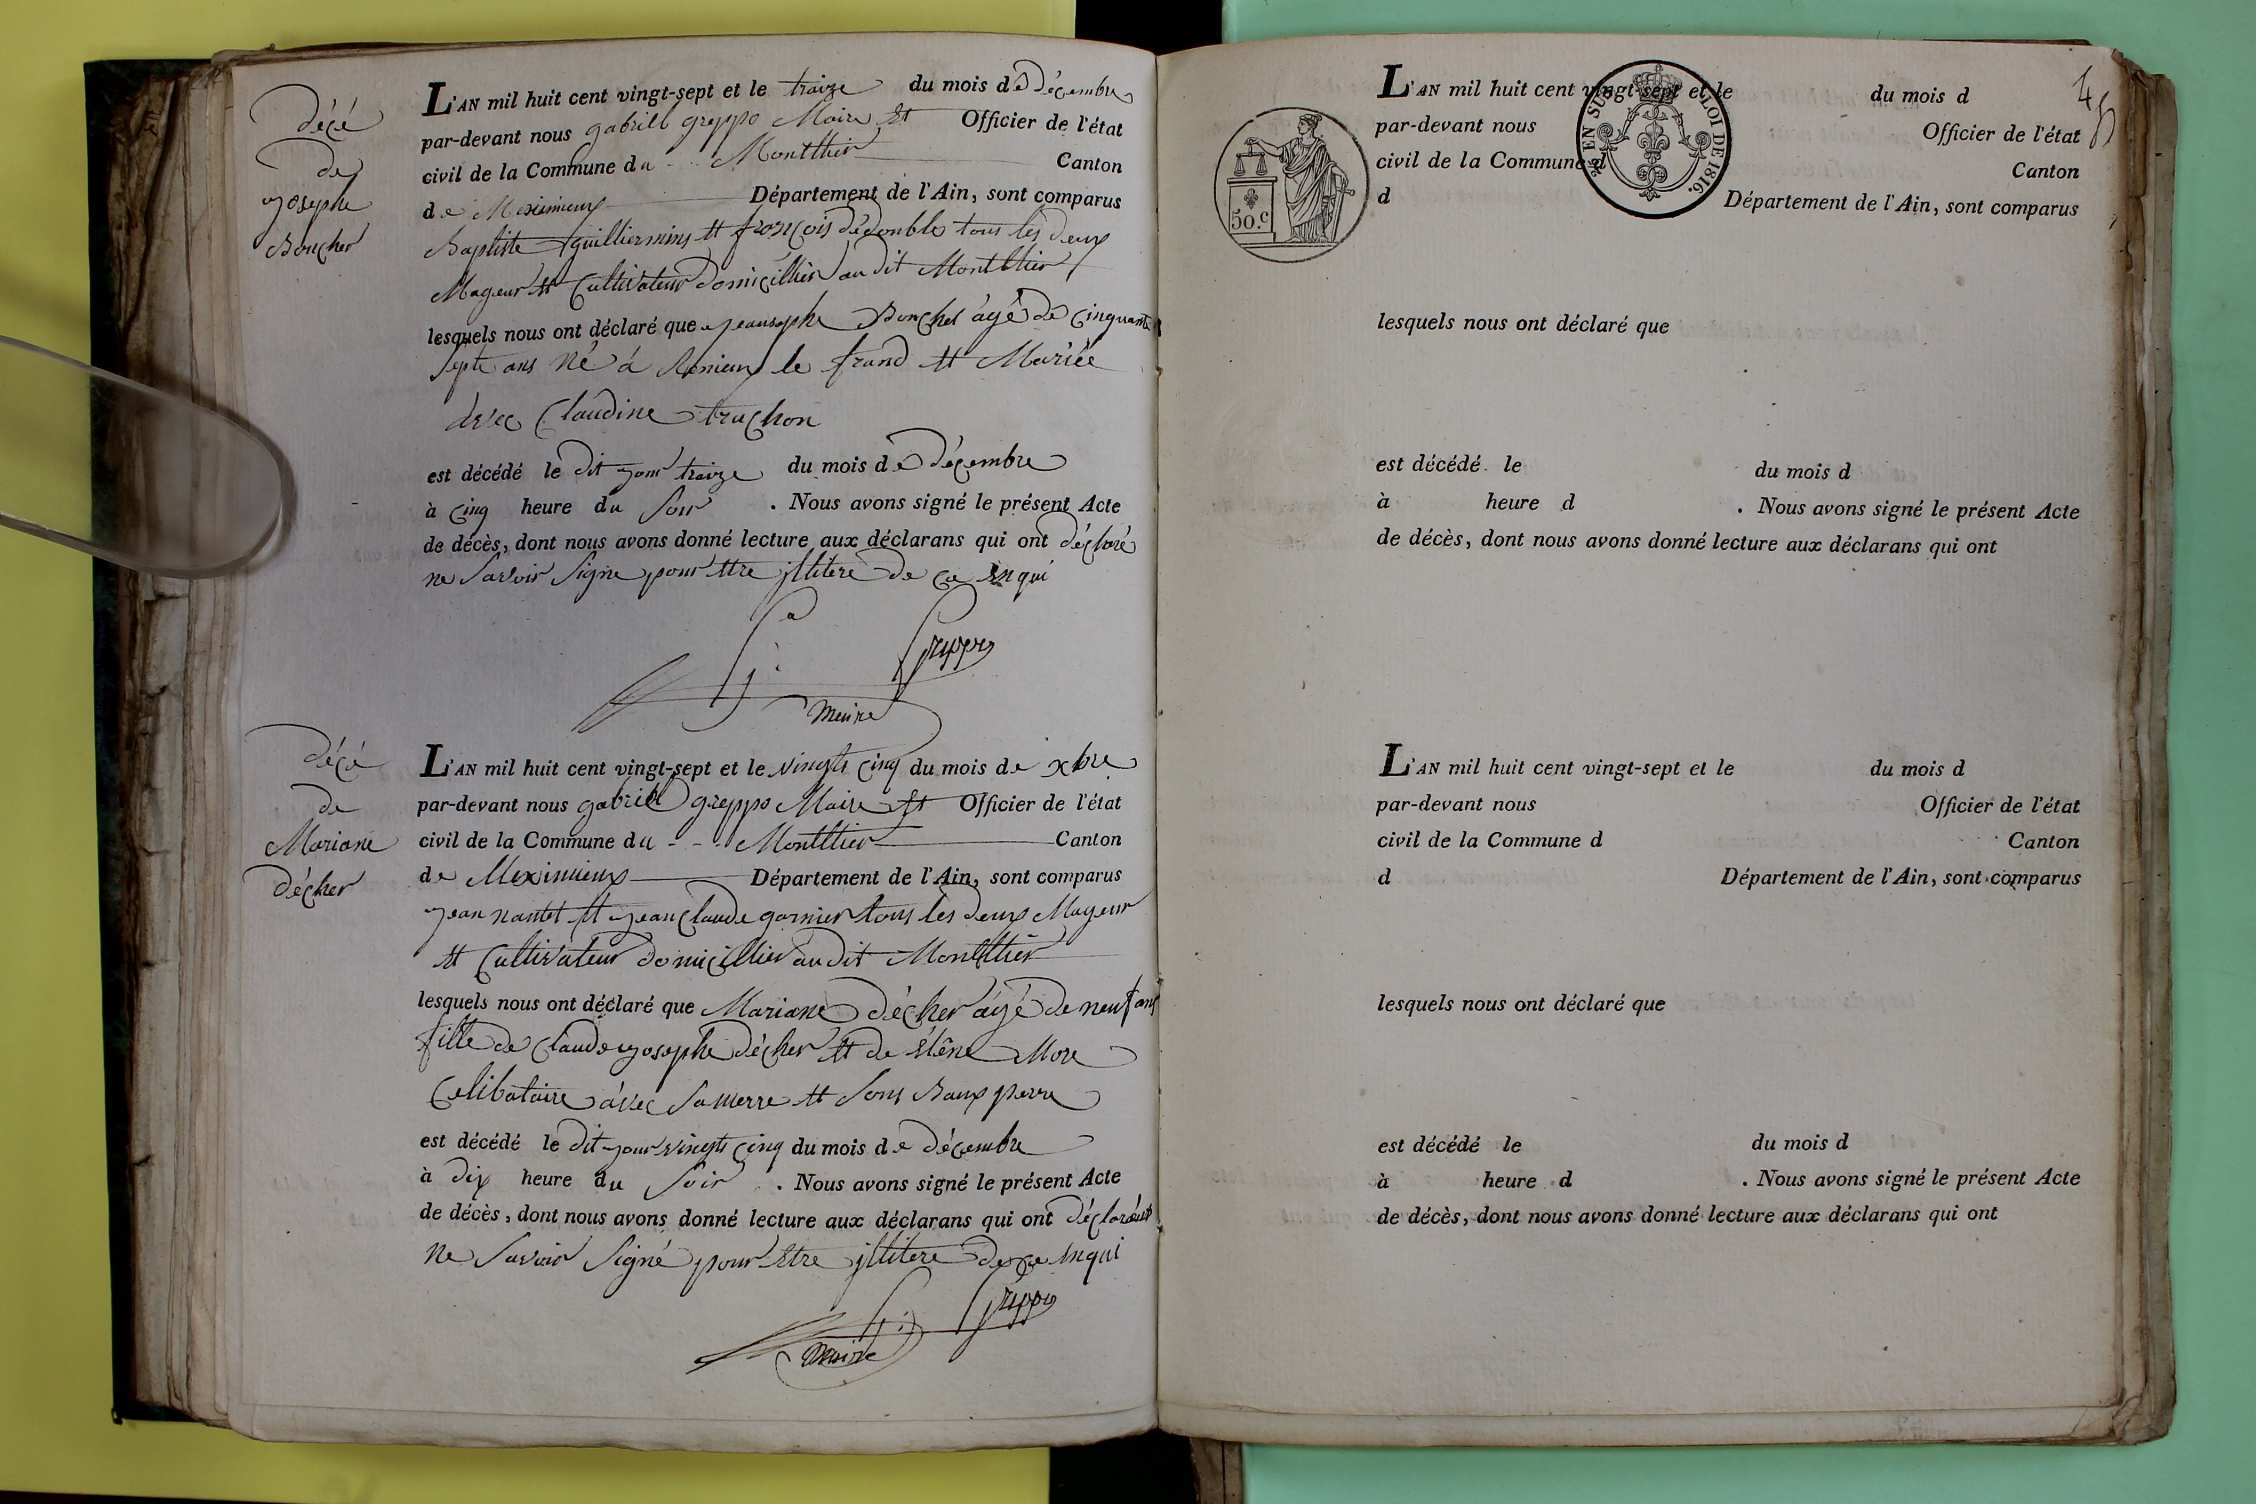 décé
de
josephe
Boucher
L'AN mil huit cent vingt-sept et le traize du mois de Décembre
par-devant nous gabriel greppo Maire Et Officier de l'état
civil de la Commune du Montllier Canton
de Meximieux Département de l'Ain, sont comparus
Baptiste guilliermins Et françois dédouble tous les deux
Mageur Et Cultivateur domicillier au dit Montllier
lesquels nous ont déclaré que Boucher âgé de cinquante
septe ans Né à le frand Et Mariée
avec Claudine truchon
est décédé le dit jour traize du mois de Décembre
à cinq heure du soir . Nous avons signé le présent Acte
de décès, dont nous avons donné lecture aux déclarans qui ont déclaré
ne savoir signe pour Etre jllitere de ce Enqui
greppo
meire
décé
de
Mariane
décher
L'AN mil huit cent vingt-sept et le vingts cinq du mois de xbre
par-devant nous gabriel greppo Maire Et Officier de l'état
civil de la Commune du Montllier Canton
de Meximieux Département de l'Ain, sont comparus
jean nantet Et jean Claude garnier tous les deux Mageur
Et Cultivateur domicillier au dit Montllier
lesquels nous ont déclaré que Mariane décher âgé de neuf ans
fille de Claude josephe décher Et de Elêne More
Celibataire avec sa merre Et sons Baux perre
est décédé le dit jour vingts cinq du mois de décembre
à dix heure du soir . Nous avons signé le présent Acte
de décès, dont nous avons donné lecture aux déclarans qui ont
ne savoir signé pour Etre jllitere de ce Enqui
greppo
maire
45
EN SUS LOI DE 1816.
50.c
L'AN mil huit cent vingt-sept et le du mois d
par-devant nous Officier de l'état
civil de la Commune d Canton
d Département de l'Ain, sont comparus
lesquels nous ont déclaré que
est décédé le du mois d
à heure d . Nous avons signé le présent Acte
de décès, dont nous avons donné lecture aux déclarans qui ont
L'AN mil huit cent vingt-sept et le du mois d
par-devant nous Officier de l'état
civil de la Commune d Canton
d Département de l'Ain, sont comparus
lesquels nous ont déclaré que
est décédé le du mois d
à heure d . Nous avons signé le présent Acte
de décès, dont nous avons donné lecture aux déclarans qui ont